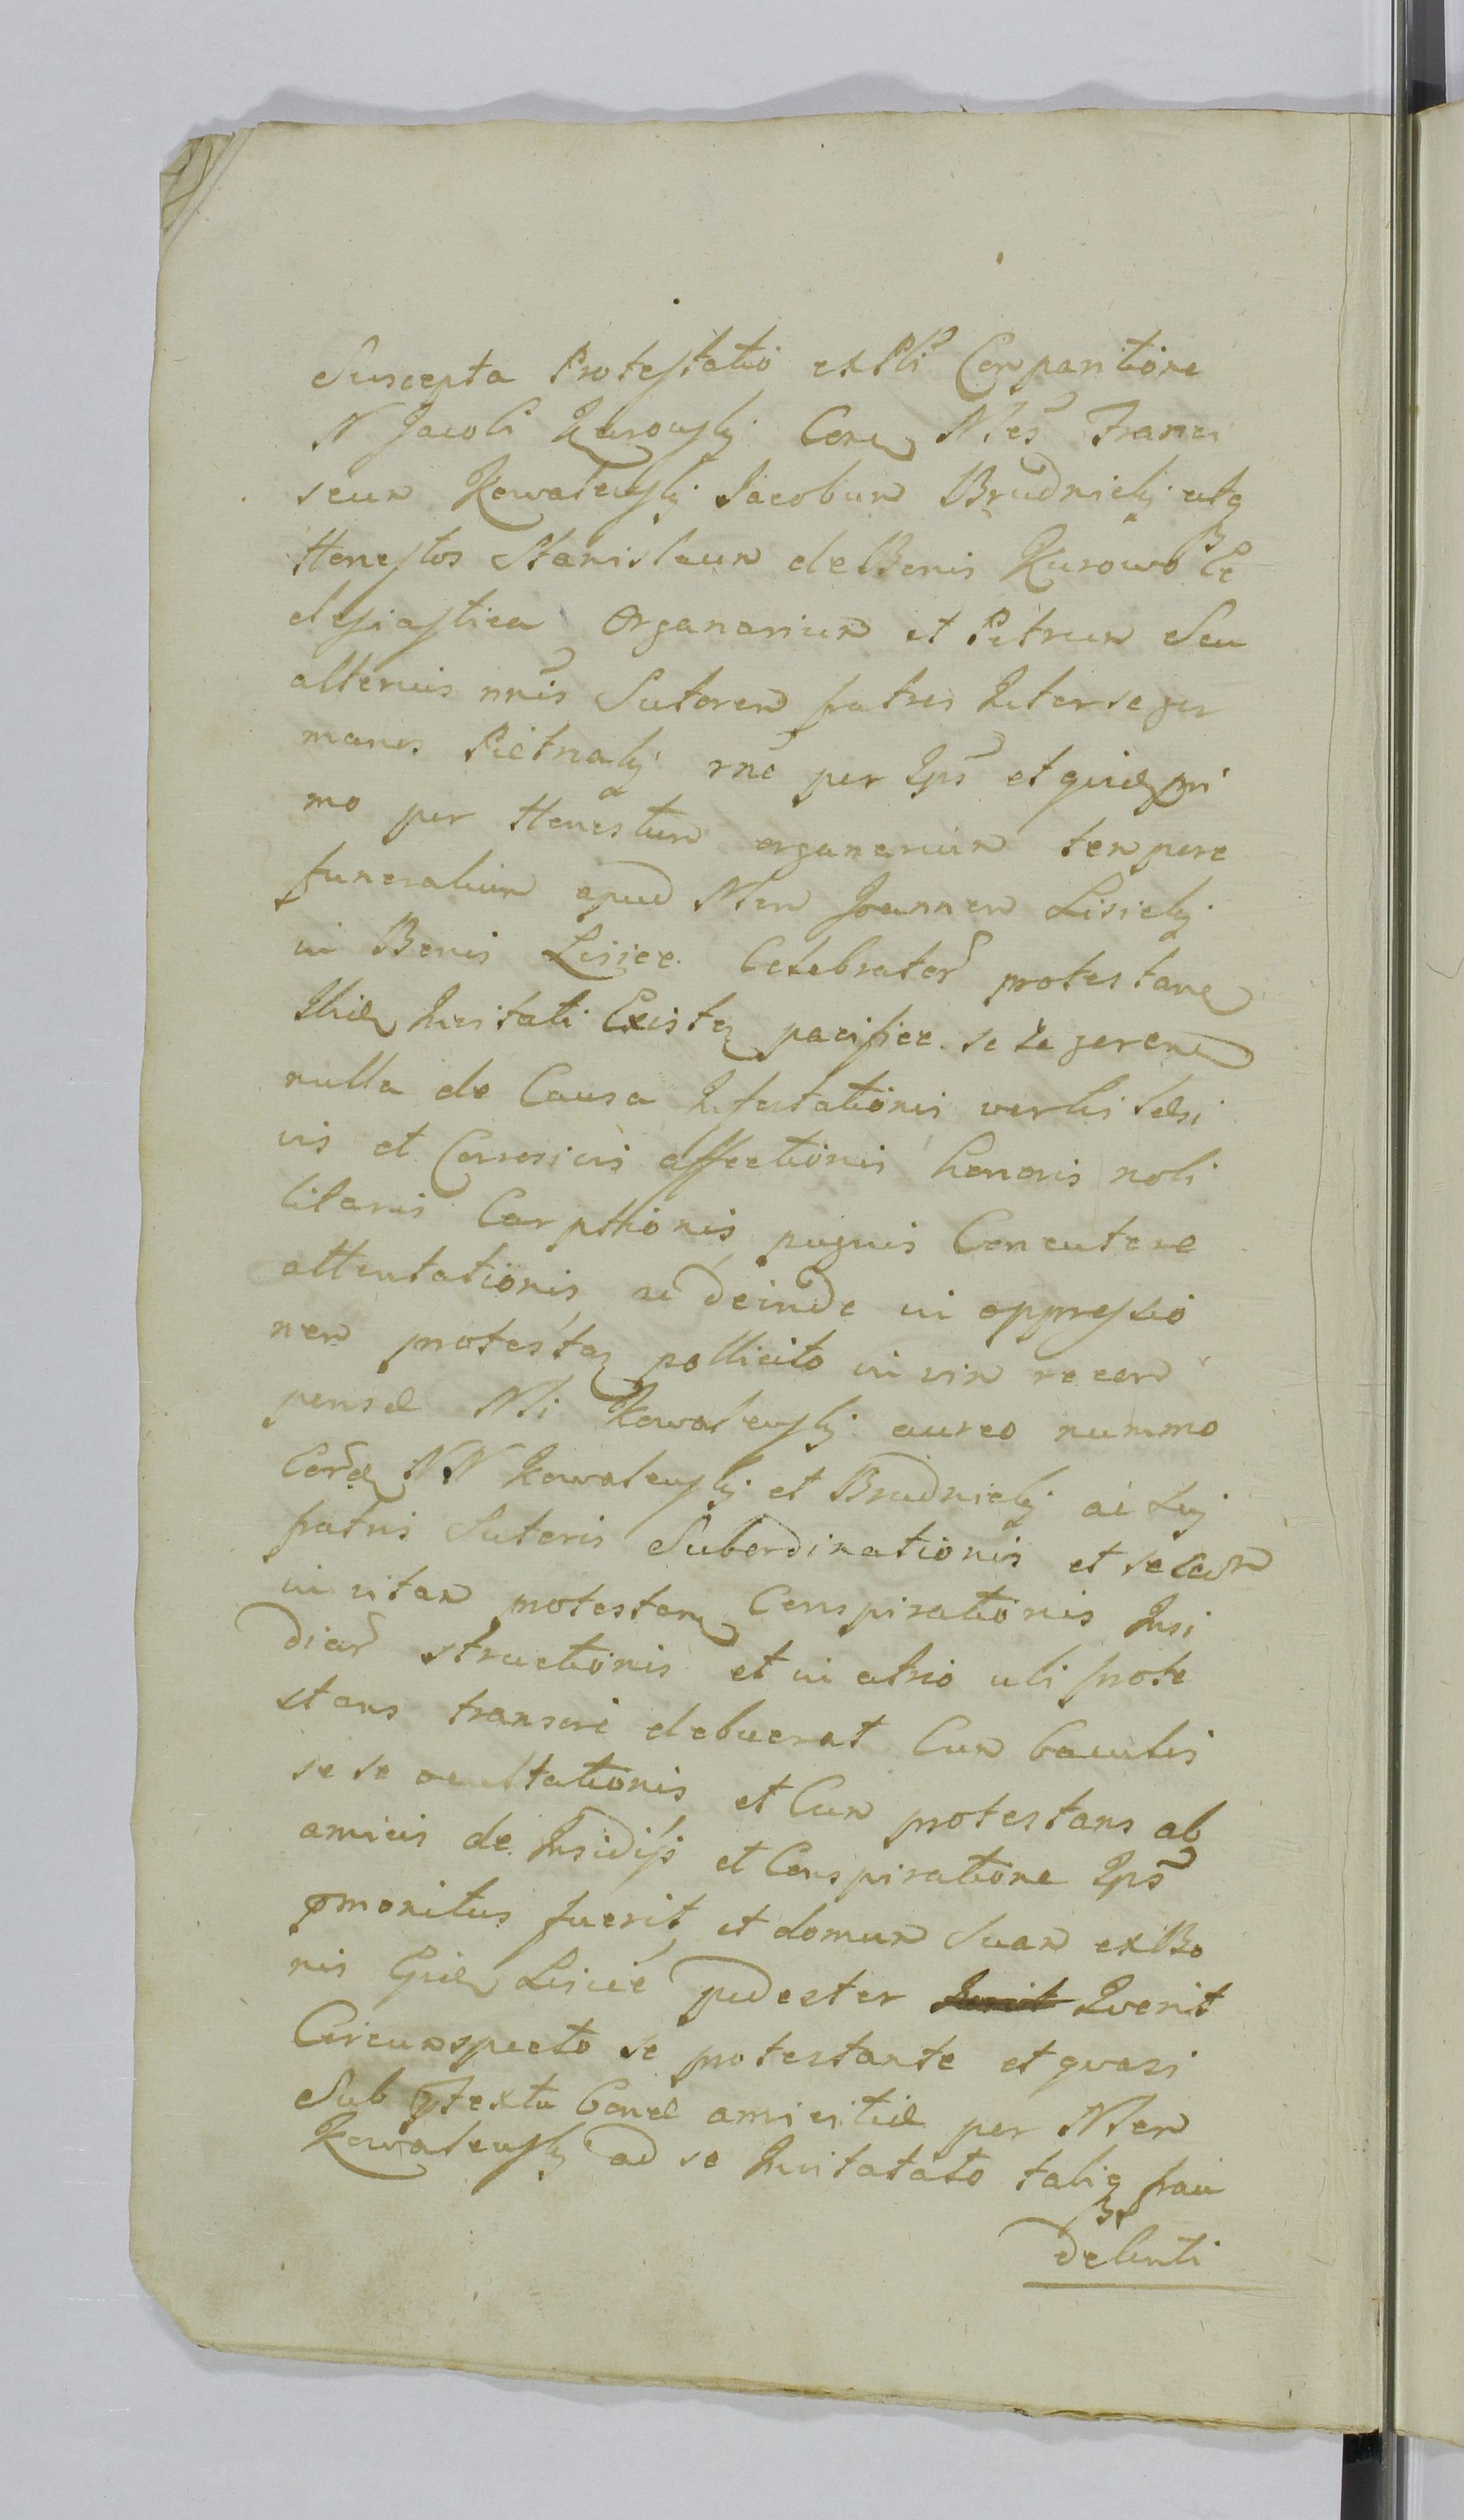 Suscepta Protestatio ex Pli Comparitione
N Jacobi Kurowski Cora Nles Franci
scum Kowalewski Jacobum Brudnicki atq
Honestos Stanislaum de Bonis Kurowo Ec
clesiastica Organarium et Petrum Seu
alterius nnis Sutorem fratres Inter se ger
manos Pietruski rne per Ips et quidem pri
mo per Honestum organarium tempore
funeralium apud Nlem Joannem Lisicki
in Bonis Lisice Celebrator protestane
Ibidem Invitati Existen pacifice se se gerene
nulla de Causa Infestationis verbis lesi
vis et Corrosivis affectionis honoris nobi
litaris Carptionis pugnis Concutere
attentationis ac deinde in oppressio
nem protestan pollicito in vim recom
pensae Nli Kowalewski aureo nummo
Cord NN Kowalewski et Brudnicki ac suj
fatris Sutoris Subordinationis et secum
in vitam protestan Conspirationis Insi
diar structionis et in atrio ubi prote
stans transire debuerat Cum baculis
se se ocultationis et Cum protestans ab
amicis de Insidijs et Conspiratione Ips
pmonitus fuerit et domum Suam ex Bo
nis Lisice pedester Iverit Iverit
Circumspecto se protestante et quasi
Sub ptextu bonae amicitiae per Nlem
Kowalewski ad se Invitatato taliq frau
delenti